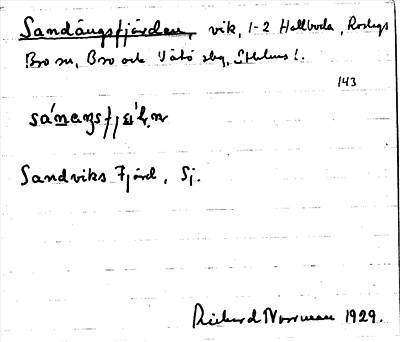 Sandängsfjärden, vik, 1-2 Hallboda, Roslags
Bro sn, Bro och Vätö sbg, Sthlms l.
143
Sandviks Fjärd, Sj.
Richard Norrman 1929.